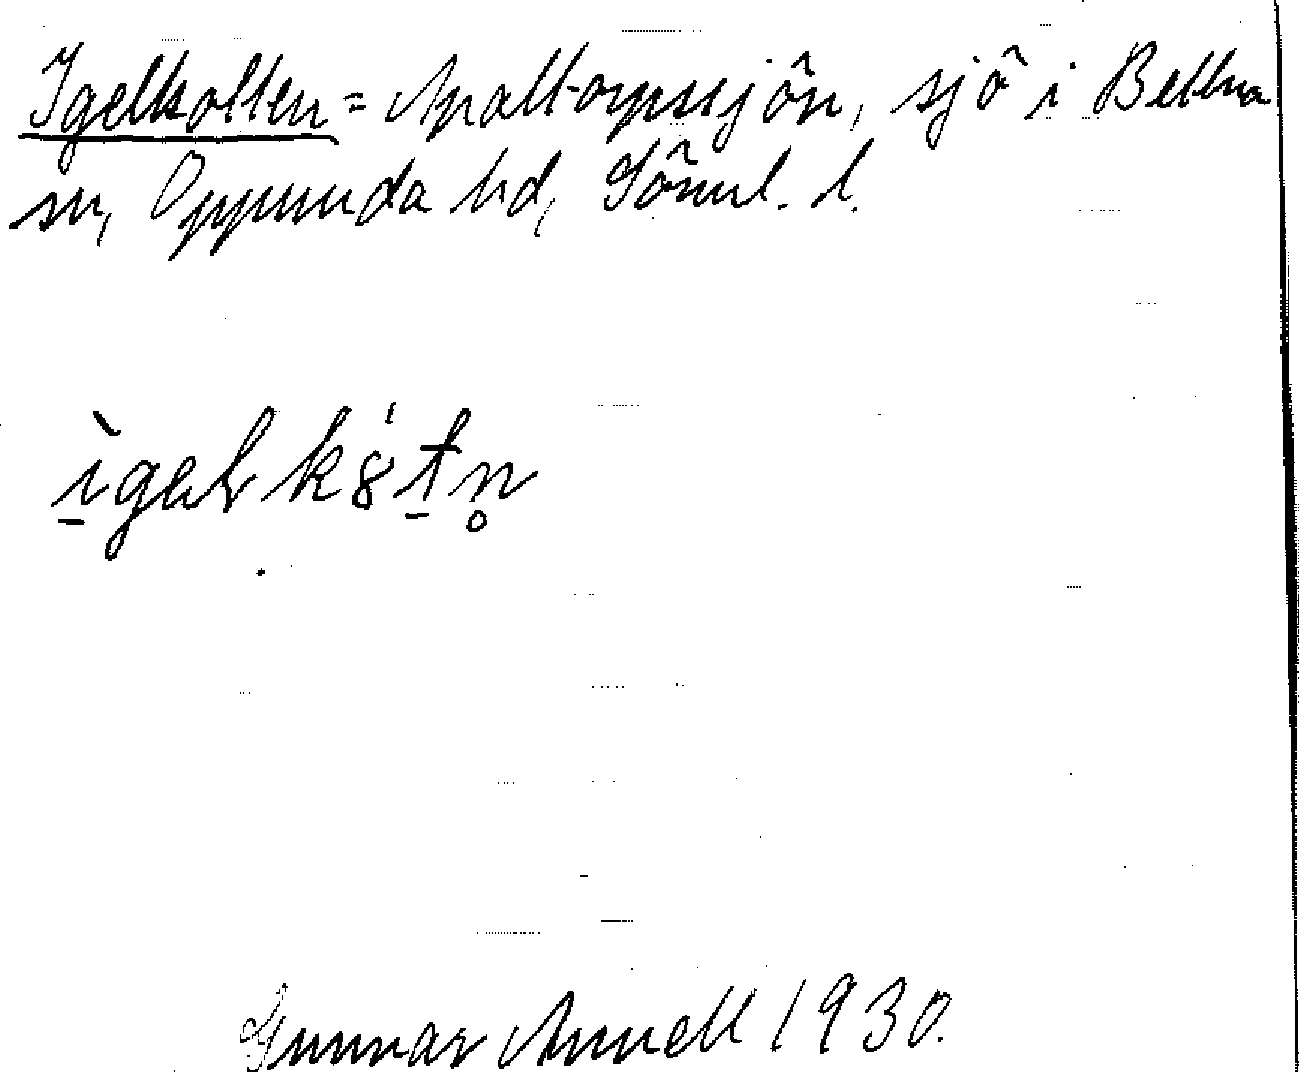 Igelkotten = Apaltorpssjön, sjö i Bettna
sn, Oppunda hd, Söml. l.
Gunnar Annell 1930.